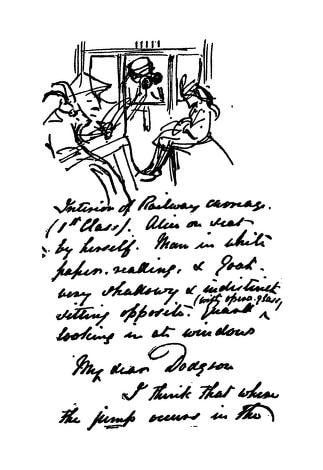 Interior of Railway carriage.
(1st Class). Alice on seat
by herself. Man in white
paper, reading, & Goat
very shadowy & indistinct
sitting opposite. Guard (with opera-glass)
looking in at window
My dear Dodgson
I think that when
the jump occurs in the